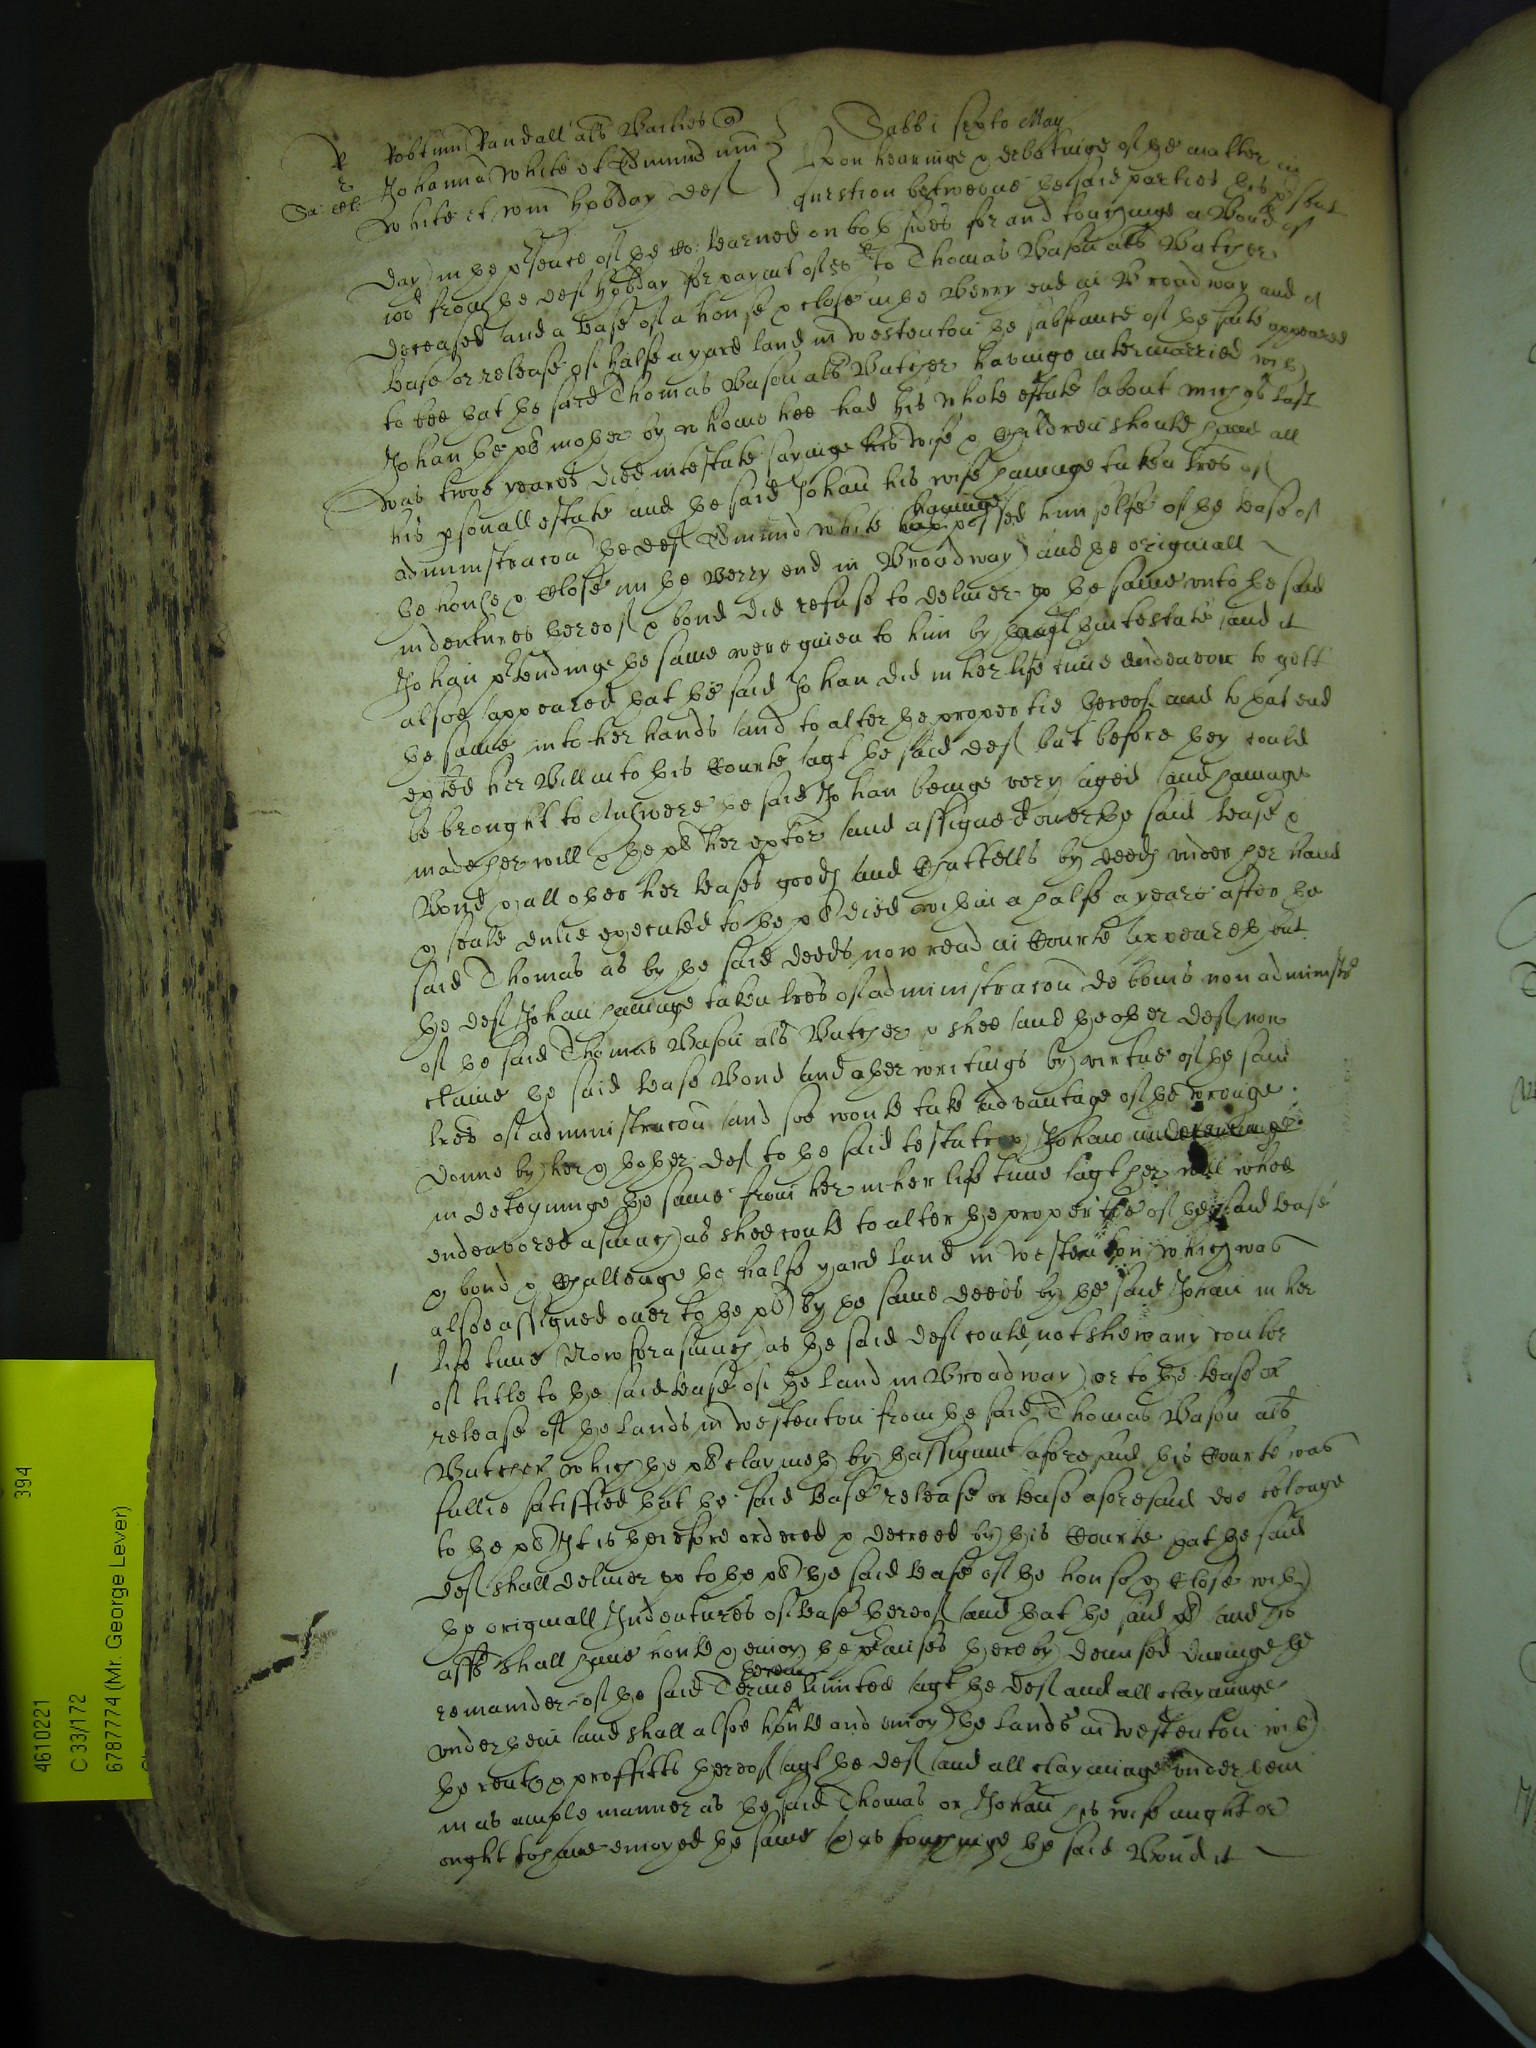 Sabbi sexto May
R
Robtum Randall als Bartles q
Johanna White et Edmund um
White et Wm Hobday Def
Upon hearinge & debatinge of the matter in
question betweene the said parties this psent
day in the psence of the Co: learned on both sides for and touchinge a Bond of
from the def Hobday for paymt of 50 to Thomas Bason als Butcher
deceased and a lease of a house & close in the Berry end in Broadway and a
lease or release of halfe a yard land in Westenton the substance of the suite appeared
to bee that the said Thomas Bason als Butcher havinge intermarried wth
Johan the pl mother by whome hee had his whole estate about Mich was last
was twoe yeares died intestate sayinge his wife & children should have all
his psonall estate and the said Johan his wife havinge taken lres of
administracon the def Edmund White havinge possessed himselfe of the lease of
the house & close in the Berry end in Broadway and the originall
indentures thereof & bond did refuse to deliver up the same unto the said
Johan ptendinge the same were given to him by the intestate and it
alsoe appeared that the said Johan did in her life time endeavour to gett
the same into her hands and to alter the propertie thereof and to that end
her Bill into this Courte agt the said def but before they could
be brought to Answere the said Johan beinge very aged and havinge
made her will & the pl her exptor and assigned over the said lease &
Bond & all other her leases goods and Chattells by deeds under her hand
& seale dulie executed to the pl died within a halfe a yeare after the
said Thomas as by the said deeds now read in Courte appeareth but
the def Johan havinge taken lres of administracon de bonis non administr
of the said Thomas Bason als Butcher & shee and the other def now
claime the said lease Bond and other writings by vertue of the said
lres of administracon and soe would take advantage of the wronge
donne by her & thother def to the said testatrix Johan
in deteyninge the same from her in her life time agt her will whoe
endeavored asmuch as shee could to alter the propertie of the said lease
& bond & challenge the halfe yard land in Westenton which was
alsoe assigned over to the pl by the same deeds by the said Johan in her
life time Now forasmuch as the said def could not shew any coulor
of title to the said lease of the land in Broadway or to the lease or
release of the lands in Westenton from the said Thomas Bason als
Butcher which the pl claymeth by thassignmt aforesaid this Courte was
fullie satisfied that the said lease release or lease aforesaid doe belonge
to the pl It is therefore ordered & decreed by this Courte that the said
def shall deliver up to the pl the said lease of the house & close with
the originall Indentures of lease thereof and that the said pl and his
asss shall have hould & enioy the pmises thereby demised duringe the
remainder of the said Terme therein limited agt the def and all clayminge
under them and shall alsoe hould and enioy the lands in Westenton with
the rents & proffitts thereof agt the def and all clayminge under them
in as ample manner as the said Thomas or Johan his wife might or
ought to have enioyed the same & as touchinge the said Bond it
394
4610221
C 33/172
6787774 (Mr. George Lever)